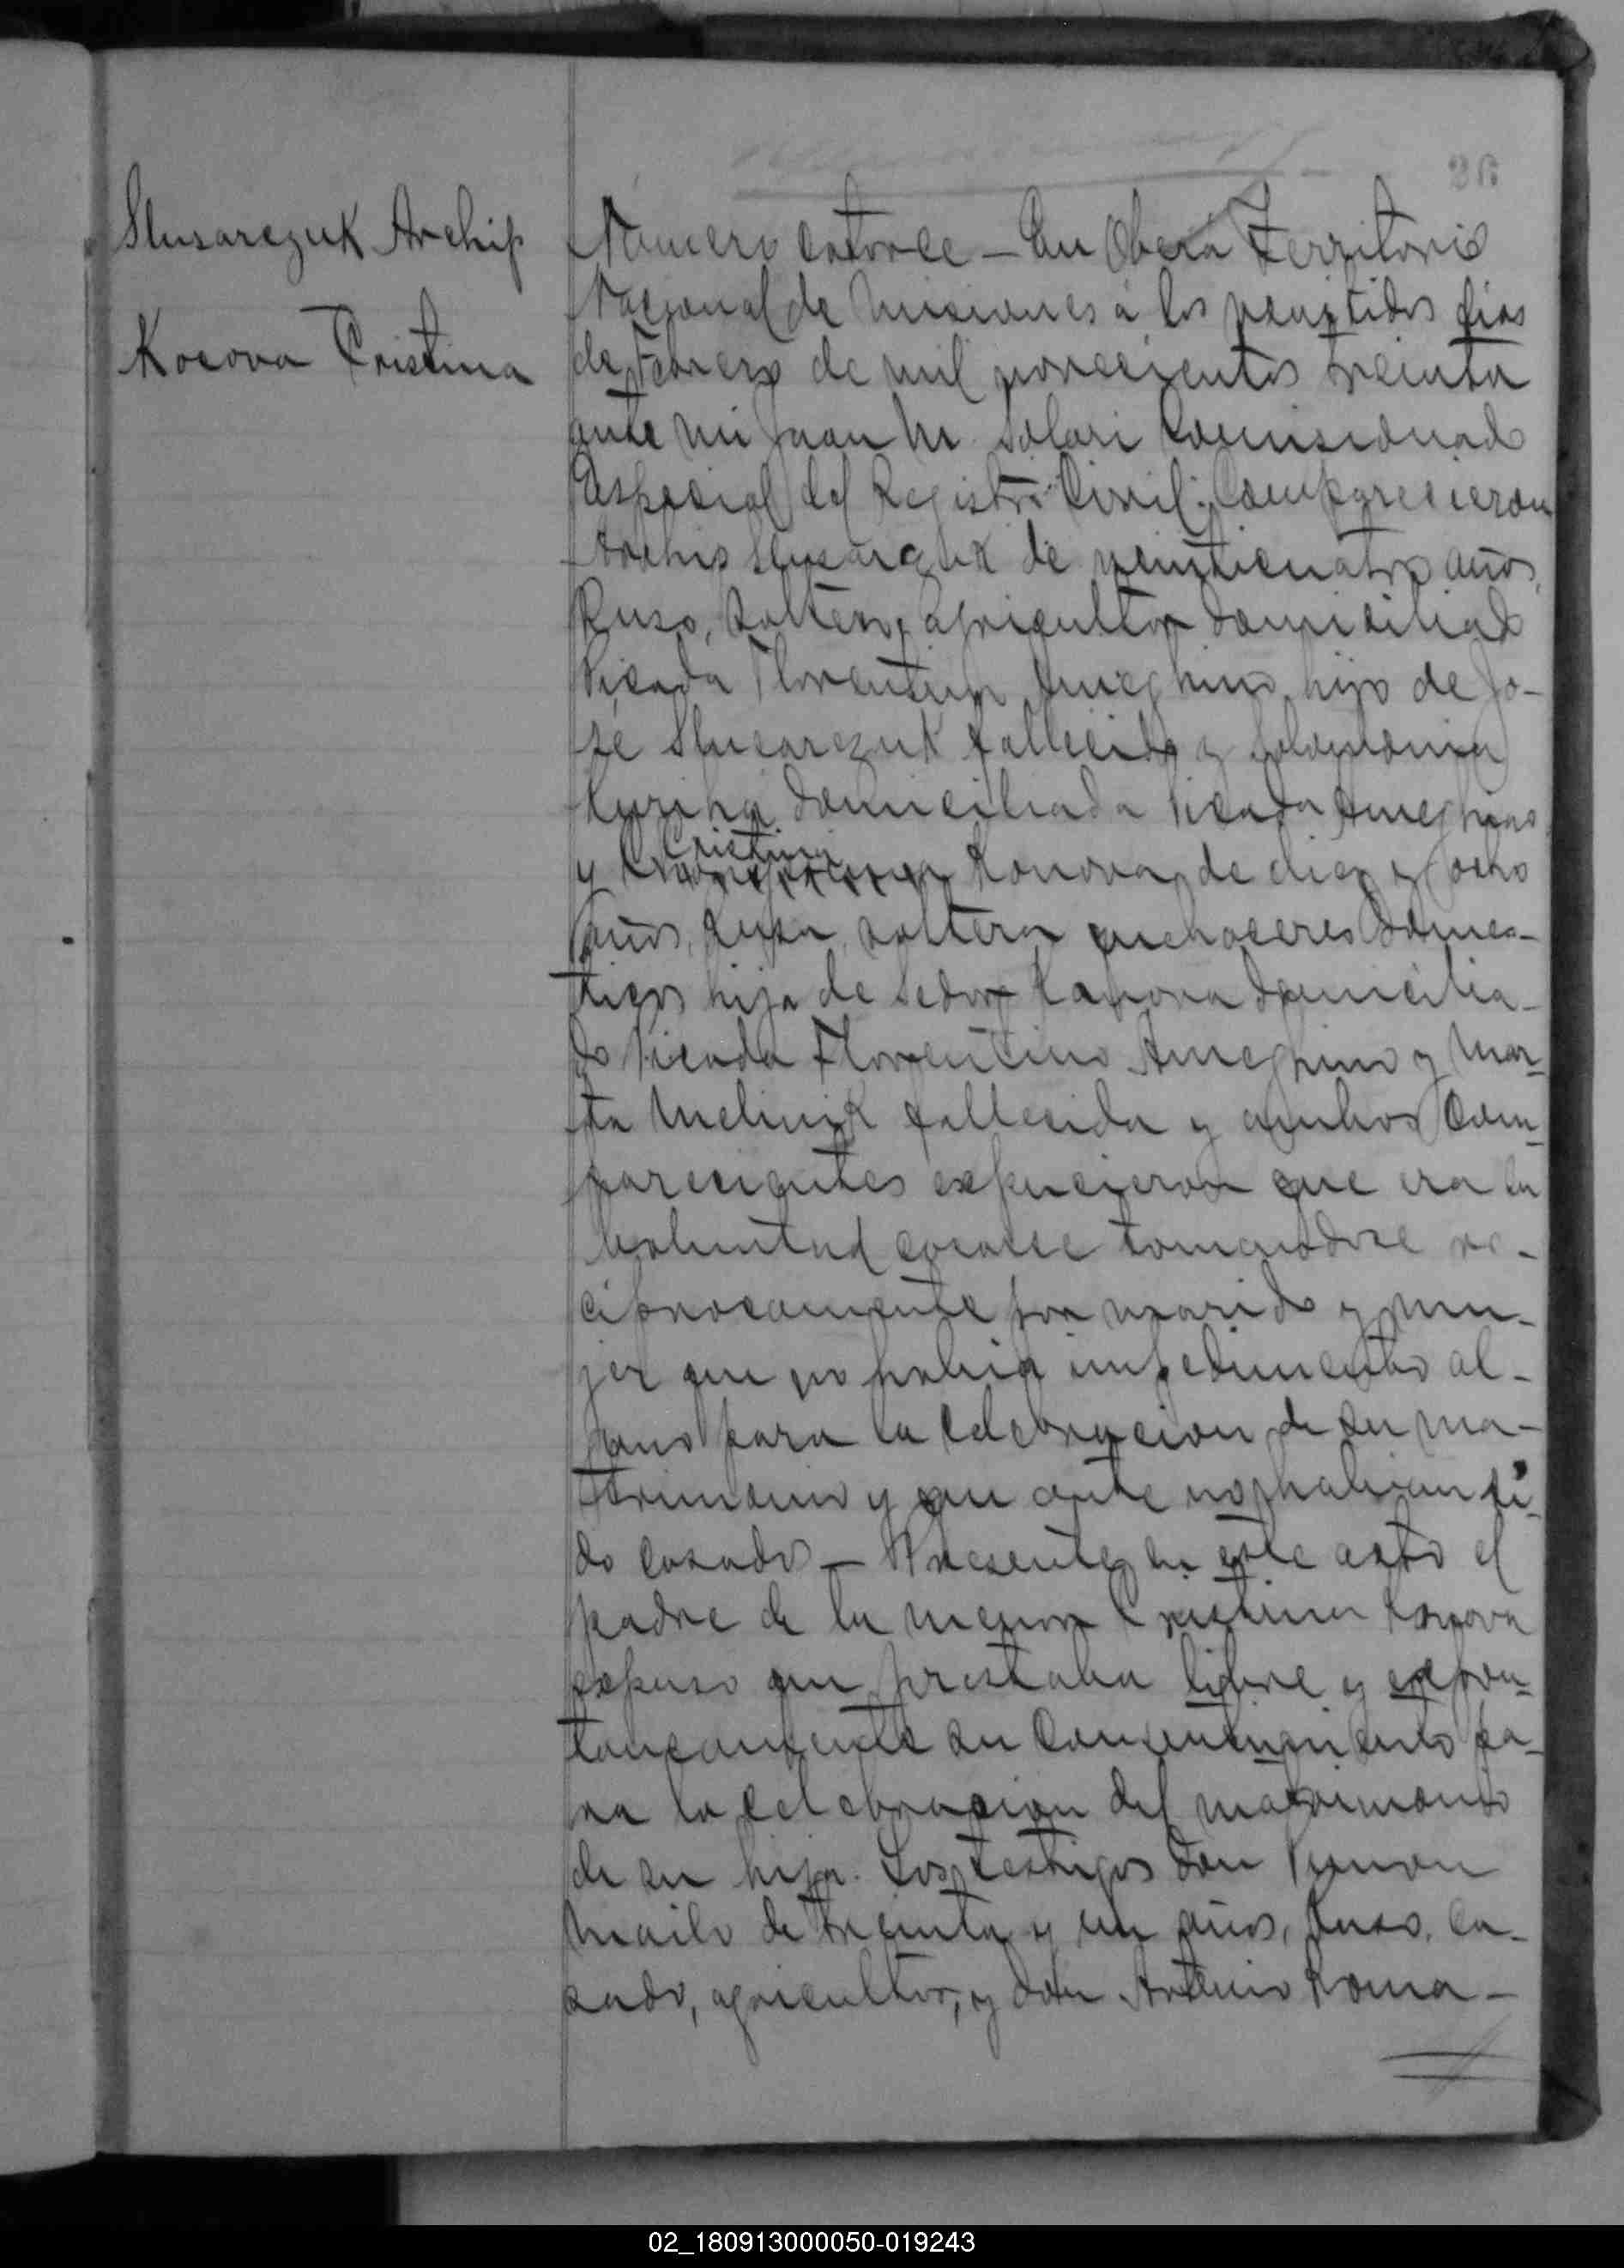 26
Slusarczuk Archip
Kocova Cristina
Número catorce — En Oberá Territorio
Nacional de Misiones á los veintidos dias
de Febrero de mil novecientos treinta
ante mi Juan M. Solari Comisionado
Especial del Registro Civil: Comparecieron
Archip Slusarczuk de veinticuatro años,
Ruso, soltero, agricultor domiciliado
Picada Florentino Ameghino, hijo de Jo-
sé Slusarczuk fallecido y Solomonia
domiciliada Picada Ameghino
y Cristina Konova, de diez y ocho
años, Rusa, soltera quehaceres domes-
ticos hija de Sedor Kanova domicilia-
do Picada Florentino Ameghino y Mar-
ta Melinik fallecida y ambos com-
parecientes expucieron que era su
voluntad casarse tomandose re-
ciprocamente por marido y mu-
jer que no habia impedimento al-
guno para la celebracion de su ma-
trimonio y que ante no habian si-
do casados — Presente en este acto el
padre de la menor Cristina Konova
expuso que prestaba libre y expon-
taneamente su consentimiento pa-
ra la celebracion del matrimonio
de su hija. Los testigos don
Mailo de treinta y un años, Ruso, ca-
sado, agricultor, y don Artemio Roma-
02_180913000050-019243